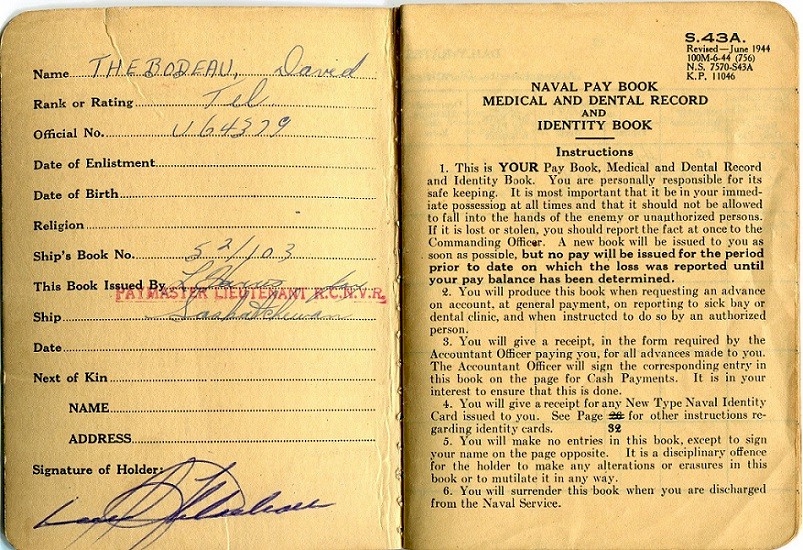 Name THEBODEAU, David
Rank or Rating Tel
Official No. U64379
Date of Enlistment
Date of Birth
Religion
Ship's Book No. 52/103
This Book Issued By
PAYMASTER LIEUTENANT R.C.N.V.R.
Ship Saskatchewan
Date
Next of Kin
NAME
ADDRESS
Signature of Holder:
S.43A.
Revised—June 1944
100M-6-44 (756)
N.S. 7570-S43A
K.P. 11046
NAVAL PAY BOOK
MEDICAL AND DENTAL RECORD
AND
IDENTITY BOOK
Instructions
1. This is YOUR Pay Book, Medical and Dental Record
and Identity Book. You are personally responsible for its
safe keeping. It is most important that it be in your immed-
iate possession at all times and that it should not be allowed
to fall into the hands of the enemy or unauthorized persons.
If it is lost or stolen, you should report the fact at once to the
Commanding Officer. A new book will be issued to you as
soon as possible, but no pay will be issued for the period
prior to date on which the loss was reported until
your pay balance has been determined.
2. You will produce this book when requesting an advance
on account, at general payment, on reporting to sick bay or
dental clinic, and when instructed to do so by an authorized
person.
3. You will give a receipt, in the form required by the
Accountant Officer paying you, for all advances made to you.
The Accountant Officer will sign the corresponding entry in
this book on the page for Cash Payments. It is in your
interest to ensure that this is done.
4. You will give a receipt for any New Type Naval Identity
Card issued to you. See Page 28 for other instructions re-
garding identity cards. 32
5. You will make no entries in this book, except to sign
your name on the page opposite. It is a disciplinary offence
for the holder to make any alterations or erasures in this
book or to mutilate it in any way.
6. You will surrender this book when you are discharged
from the Naval Service.